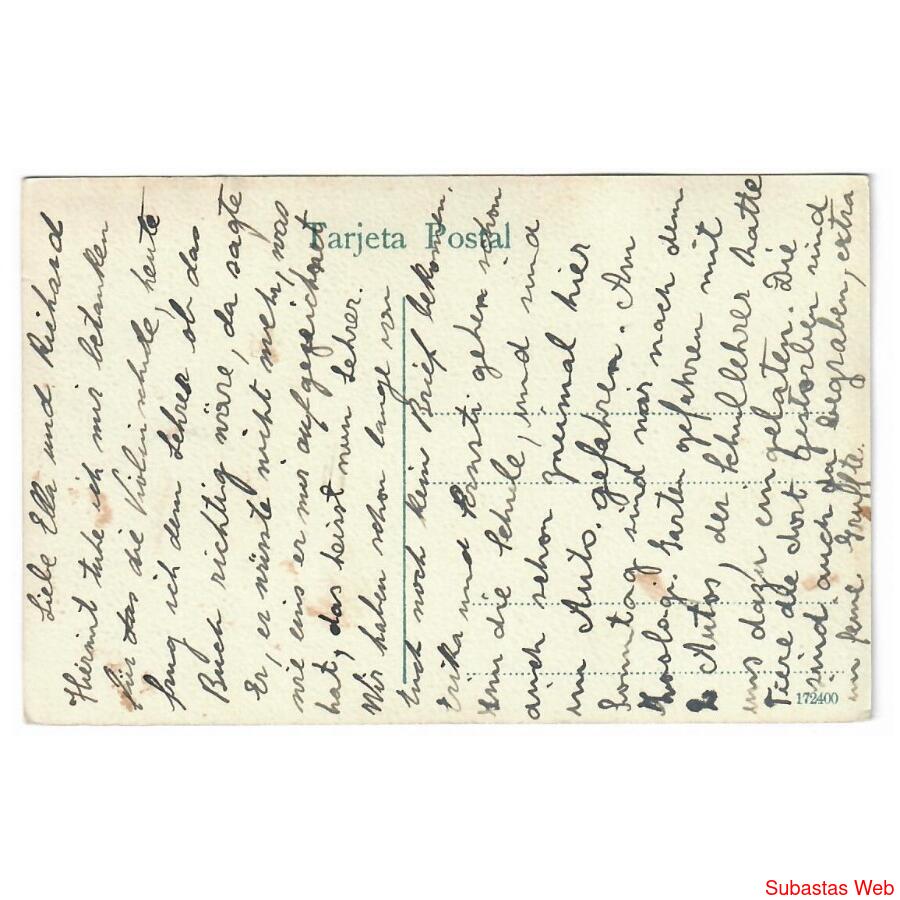 Tarjeta Postal
Liebe Ella und Richard
Hiermit tude ich mns betanken
für das die Violinschule, heute
frug ich dem Lehrer ob das
Buch richtig wäre, da sagte
Er, er wüste nicht mehr, was
für eins er mir aufgezeichnet
hat, das heisst mein Lehrer.
Wir haben schon lange von
Euch noch kein Brief bekomen.
Erika und Ernsti gehen schon
in die Schule, und sind
auch schon zweimal hier
im Auto gefahren. Am
Sonntag sind wir nach dem
Zoolog. Garten gefahren mit
2 Autos, der Schullehrer hatte
uns dazu eingelaten. Die
Tiere die dort gestorben sind
sind auch da begraben, extra
in feine Grüffte.
172400
Subastas Web